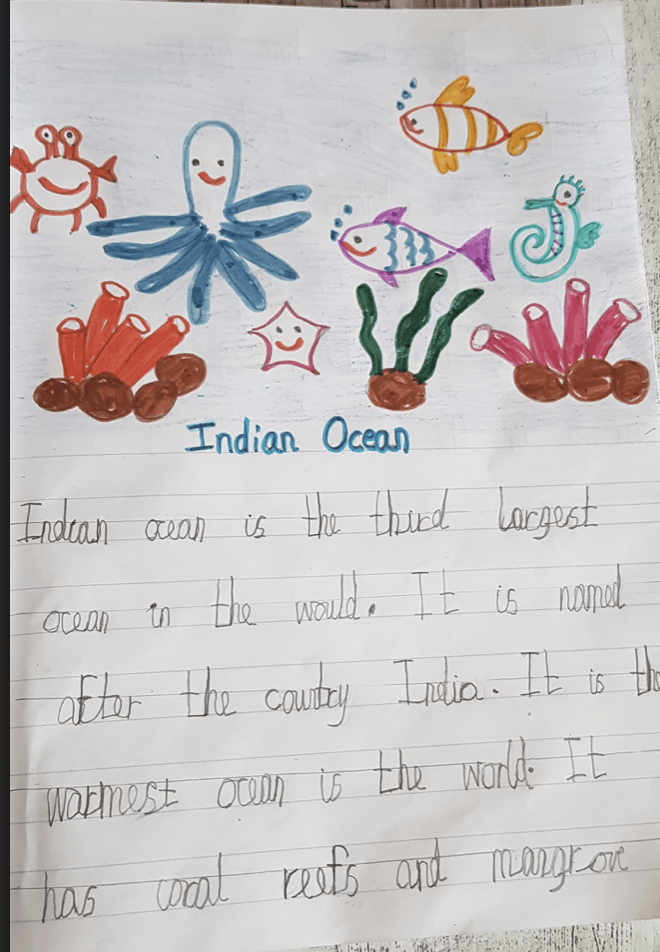 Indian Ocean
Indian ocean is the third largest
ocean in the would. It is named
after the country India. It is the
warmest ocean is the world. It
has coral reefs and mangrove